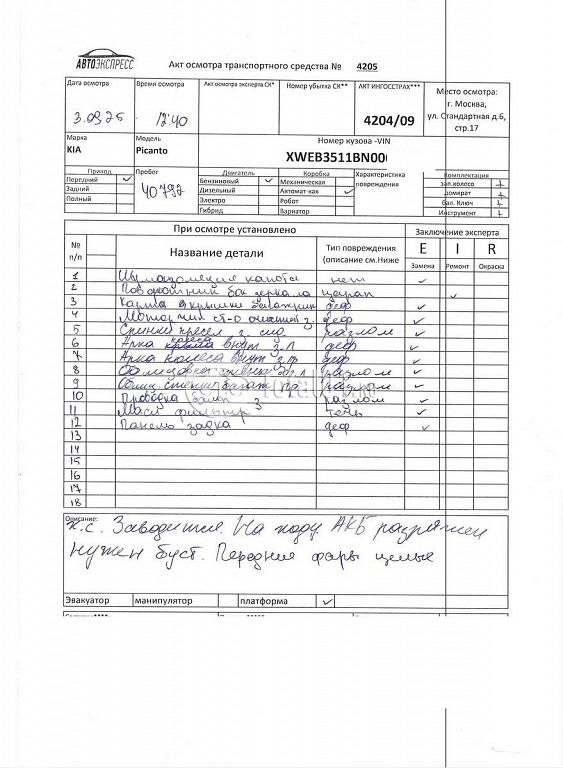 АВТОЭКСПРЕСС
Акт осмотра транспортного средства № 4205
Дата осмотра Время осмотра Акт осмотра эксперта СК* Номер убытка СК** АКТ ИНГОССТРАХ*** Место осмотра:
г. Москва,
ул. Стандартная д.6,
стр.17
12:40 4204/09
Марка Модель Номер кузова -VIN
KIA Picanto XWEB3511BN00
Привод Пробег Двигатель Коробка Характеристика повреждения Комплектация
Передний 40792 Бензиновый Механическая зап.колесо
Задний Дизельный Автомат-кая домкрат
Полный Электро Робот Бал. Ключ
Гибрид Вариатор Инструмент
При осмотре установлено Заключение эксперта
№ п/п Название детали Тип повреждения (описание см.Ниже E I R
Замена Ремонт Окраска
1 Шумоизоляция капота нет
2 зеркала царап
3 крышки багажник деф
4 з. деф
5 Спинки кресел з. разлом
6 Арка колеса внут з.л деф
7 Арка колеса внут з.п деф
8 разлом
9 разлом
10 Проводка з разлом
11 Масл фильтр течь
12 Панель задка деф
13
14
15
16
17
18
Описание:
х.с. Заводится. На ходу. АКБ разряжен
нужен буст. Передние фары целые
Эвакуатор манипулятор платформа